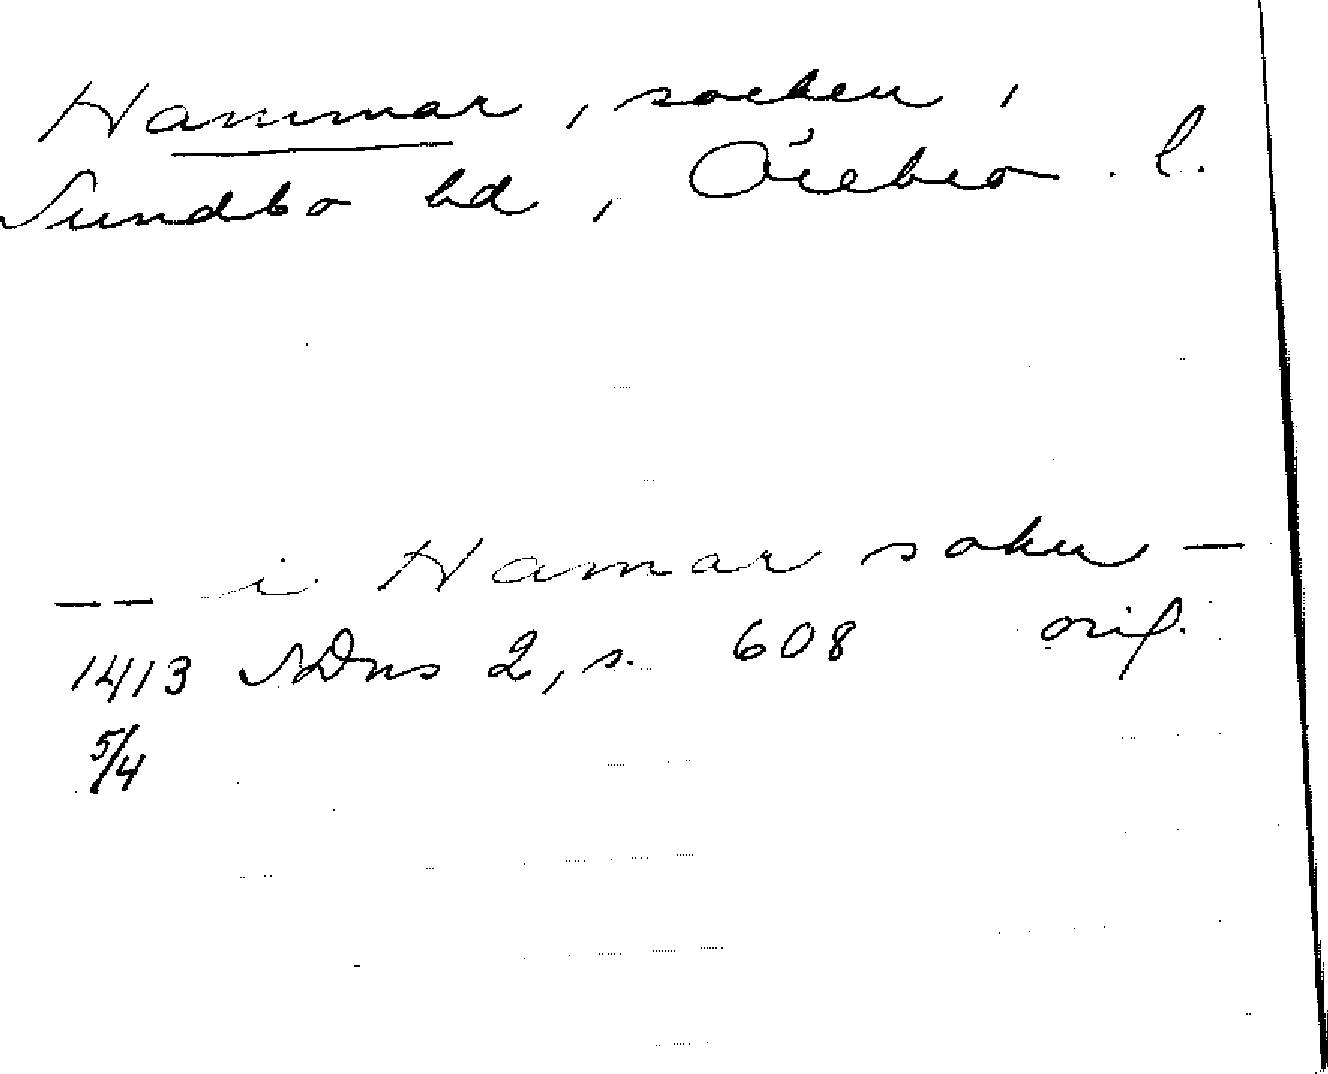 Hammar, socken,
Sundbo hd, Örebro l.
-- i Hamar sokn -
1413 SDns 2, s. 608 orig.
5/4